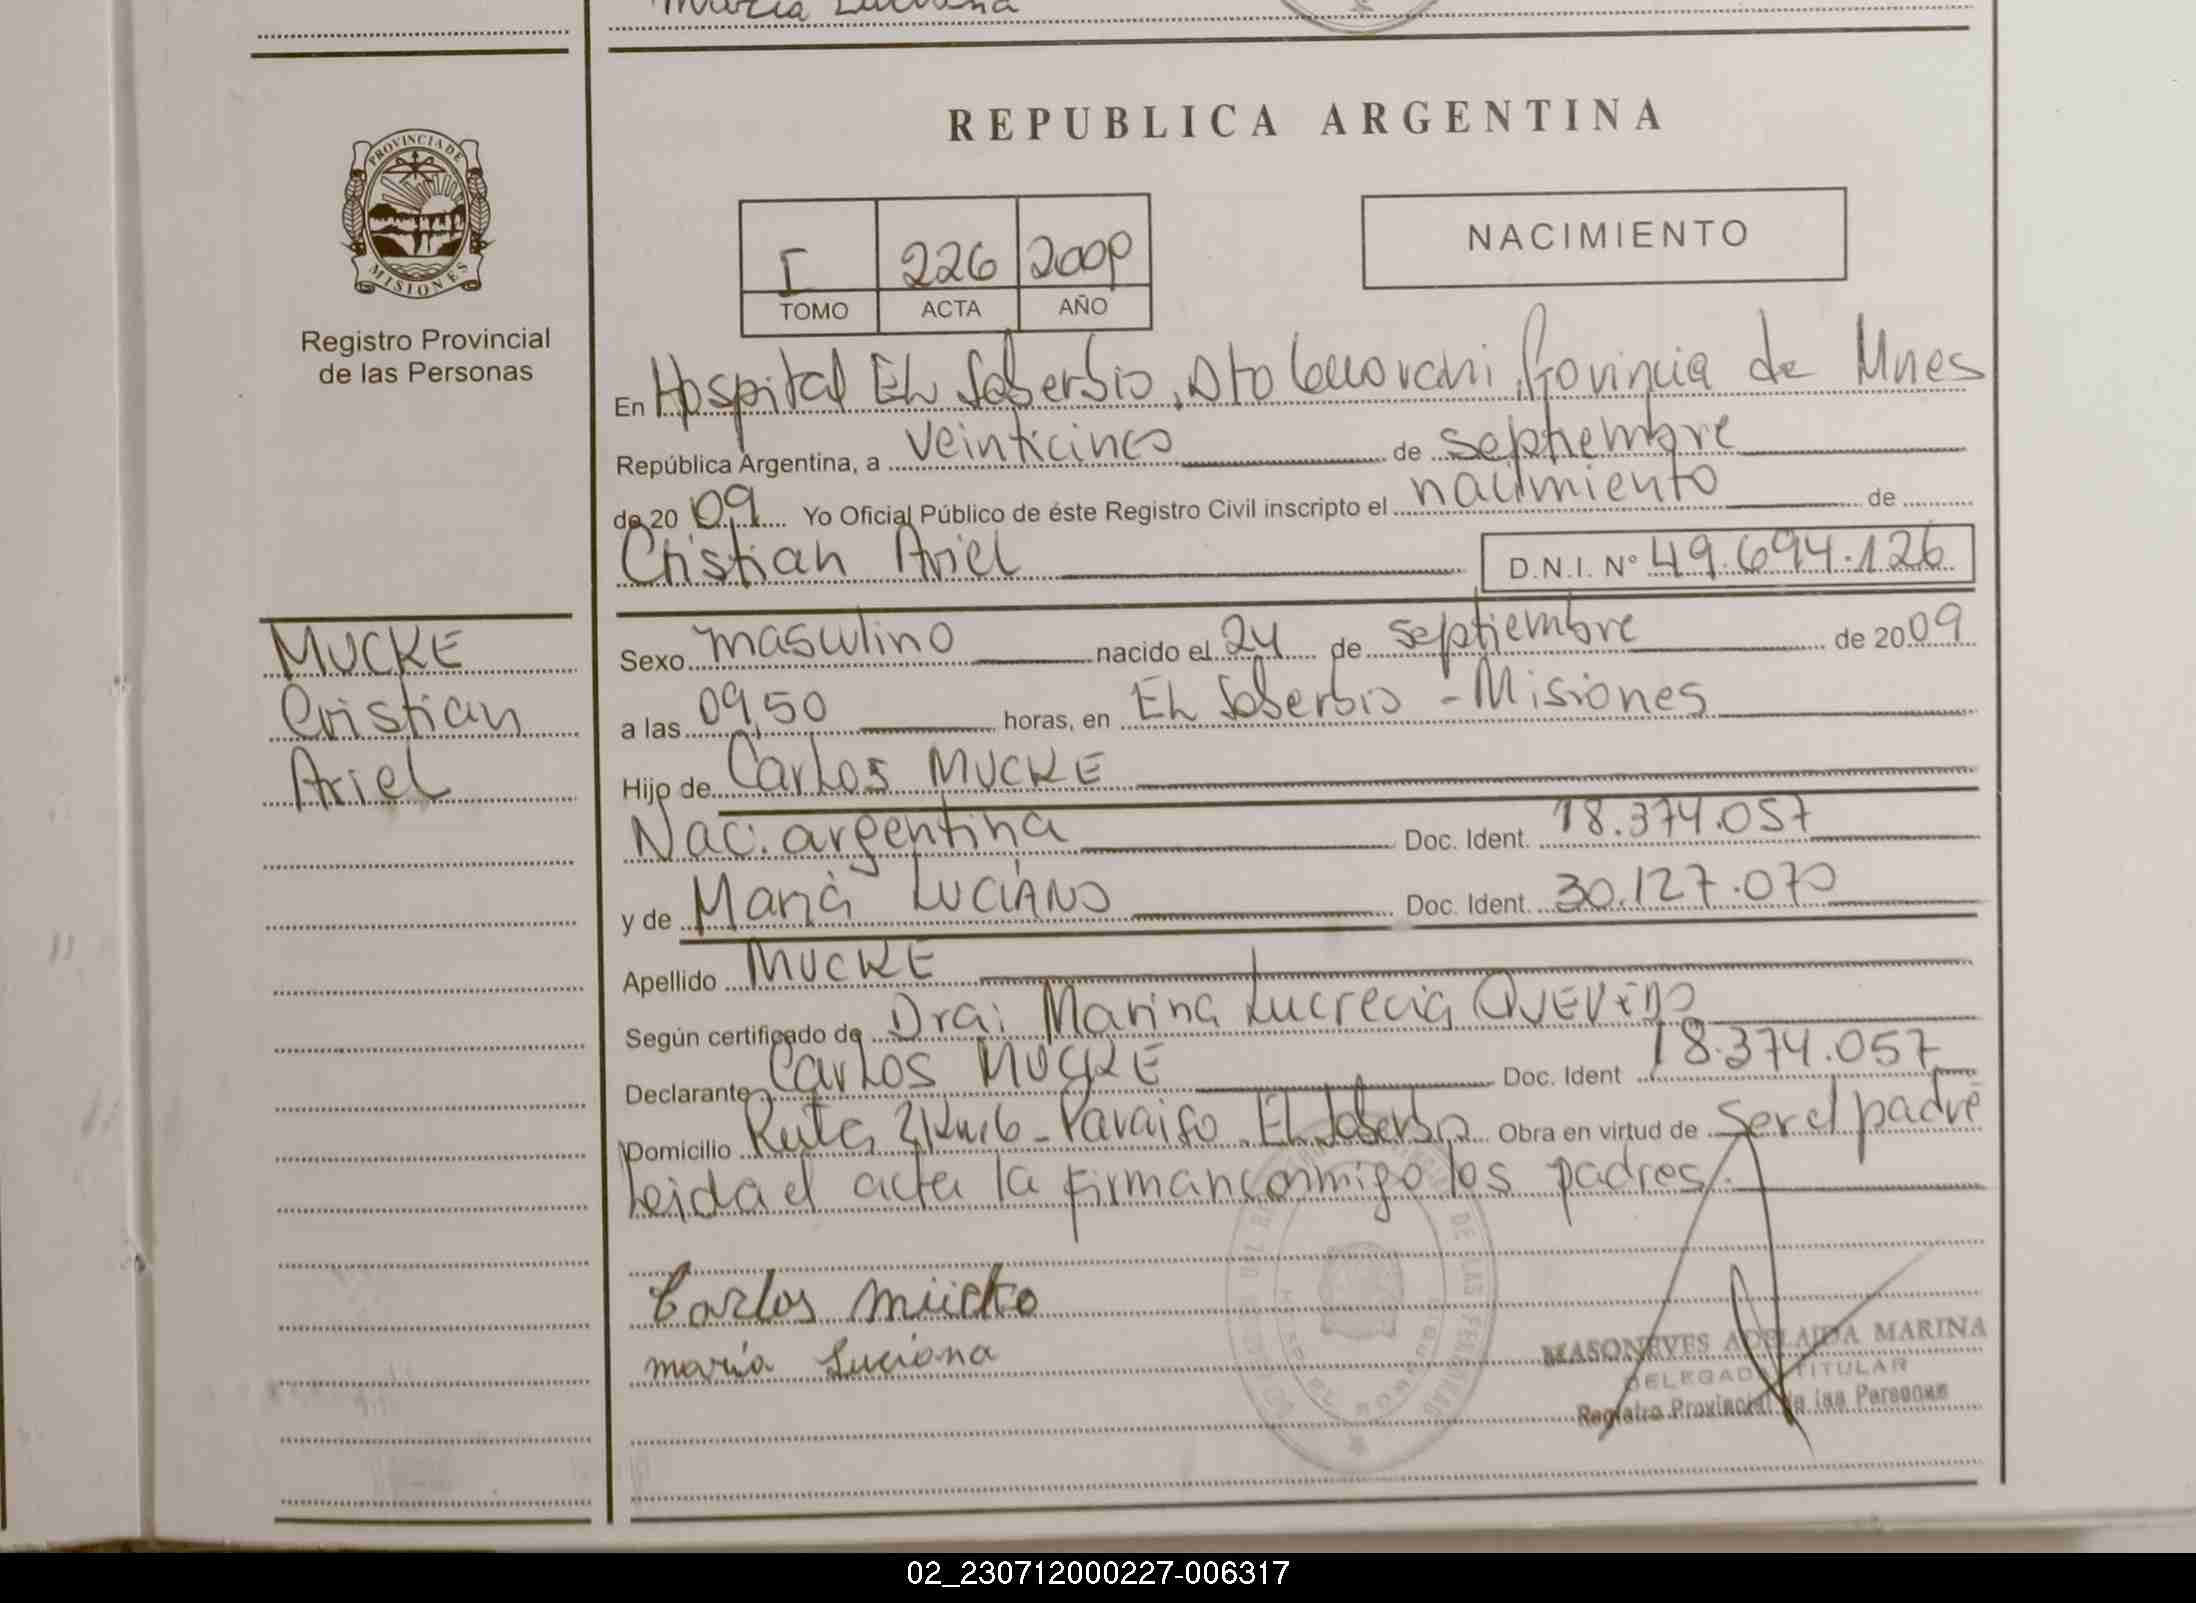 María Luciana
REPUBLICA ARGENTINA
PROVINCIA DE
MISIONES
Registro Provincial
de las Personas
I 226 2009
TOMO ACTA AÑO
NACIMIENTO
En Hospital El Soberbio, Dto Guaraní, Provincia de Mnes
República Argentina, a veinticinco de septiembre
de 2009 Yo Oficial Público de éste Registro Civil inscripto el nacimiento de
Cristian Ariel D.N.I. Nº 49.694.126
MUCKE
Cristian
Ariel
Sexo masculino nacido el 24 de septiembre de 2009
a las 09,50 horas, en El Soberbio - Misiones
Hijo de Carlos MUCKE
Nac. argentina Doc. Ident. 18.374.057
y de María LUCIANO Doc. Ident. 30.127.070
Apellido MUCKE
Según certificado de Dra: Marina Lucrecia QUEVEDO
Declarante Carlos MUCKE Doc. Ident 18.374.057
Domicilio Ruta 2 Km 6 - Paraiso. El Soberbio Obra en virtud de ser el padre
Leida el acta la firman conmigo los padres.
Carlos
maria Luciana
MASONEVES ADELAIDA MARINA
DELEGADA TITULAR
Registro Provincial de las Personas
02_230712000227-006317